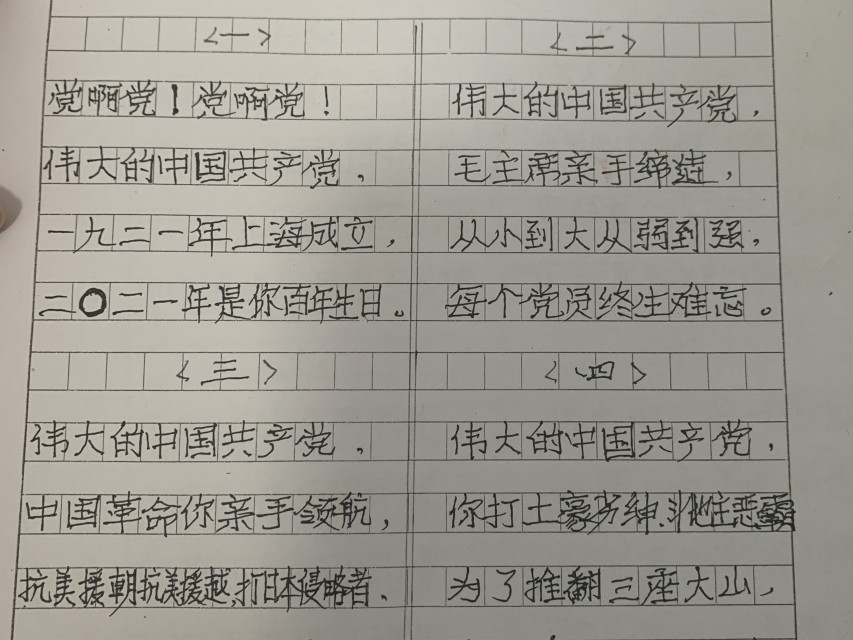 〈一〉
党啊党！党啊党！
伟大的中国共产党，
一九二一年上海成立，
二〇二一年是你百年生日。
〈二〉
伟大的中国共产党，
毛主席亲手缔造，
从小到大从弱到强，
每个党员终生难忘。
〈三〉
伟大的中国共产党，
中国革命你亲手领航，
抗美援朝抗美援越、打日本侵略者、
〈四〉
伟大的中国共产党，
你打土豪劣绅、斗地主恶霸
为了推翻三座大山，